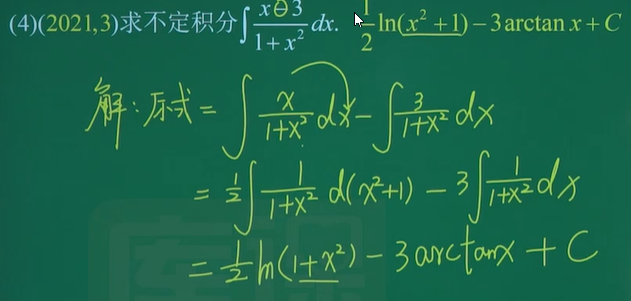 (4)(2021,3)求不定积分∫(x-3)/(1+x²) dx. 1/2 ln(x²+1)-3arctan x+C
解:原式=∫x/(1+x²) dx-∫3/(1+x²) dx
=1/2∫1/(1+x²) d(x²+1)-3∫1/(1+x²) dx
=1/2 ln(1+x²)-3arctanx+C